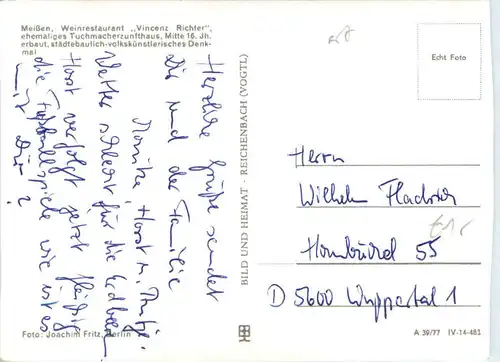 Meißen, Weinrestaurant „Vincenz Richter",
ehemaliges Tuchmacherzunfthaus, Mitte 16. Jh.
erbaut, städtebaulich-volkskünstlerisches Denk-
mal
Herzliche Grüße sendet
Dir und der Familie
Monika, Horst u. Antje.
Wetter schlecht für die Erdbeeren
Horst verfolgt jetzt fleißig
die Fußballspiele wie ist es
mit Dir?
BILD UND HEIMAT · REICHENBACH (VOGTL)
Echt Foto
Herrn
Wilhelm
Hombüchel 55
D 5600 Wuppertal 1
Foto: Joachim Fritz, Berlin
A 39/77 IV-14-483